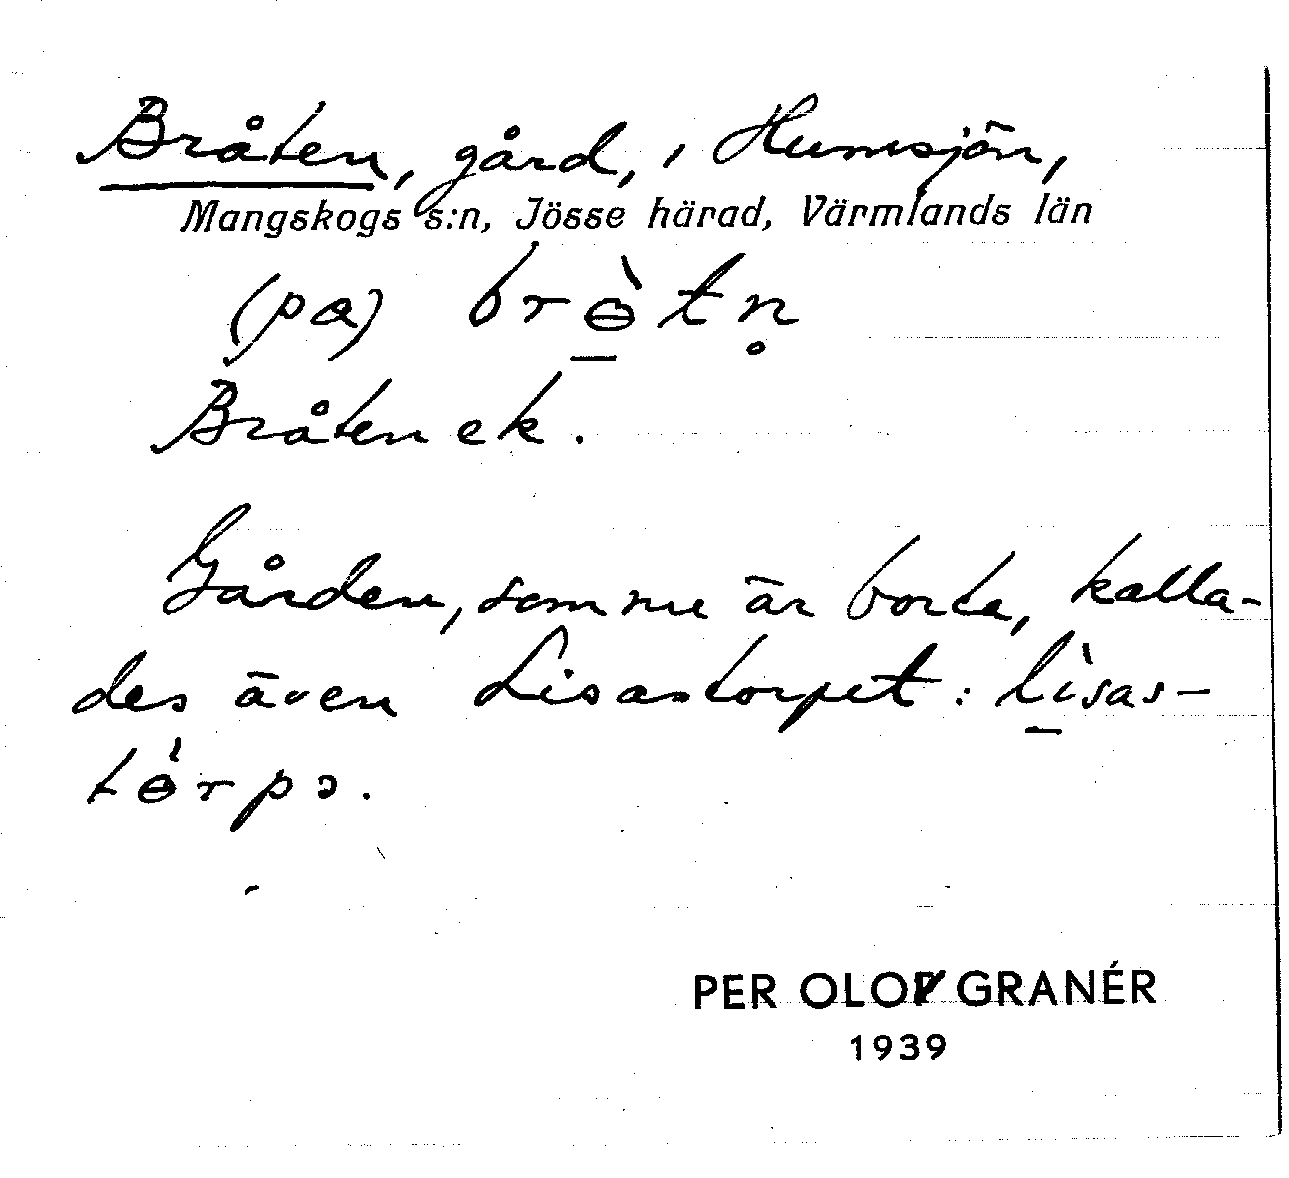 Bråten, gård, i Humsjön,
Mangskogs s:n, Jösse härad, Värmlands län
(pɑ) brɵ̀tn̥
Bråten ek.
Gården, som nu är borta, kalla-
des även Lisastorpet: lìsas-
tɵ́rpə.
PER OLOV GRANÉR
1939